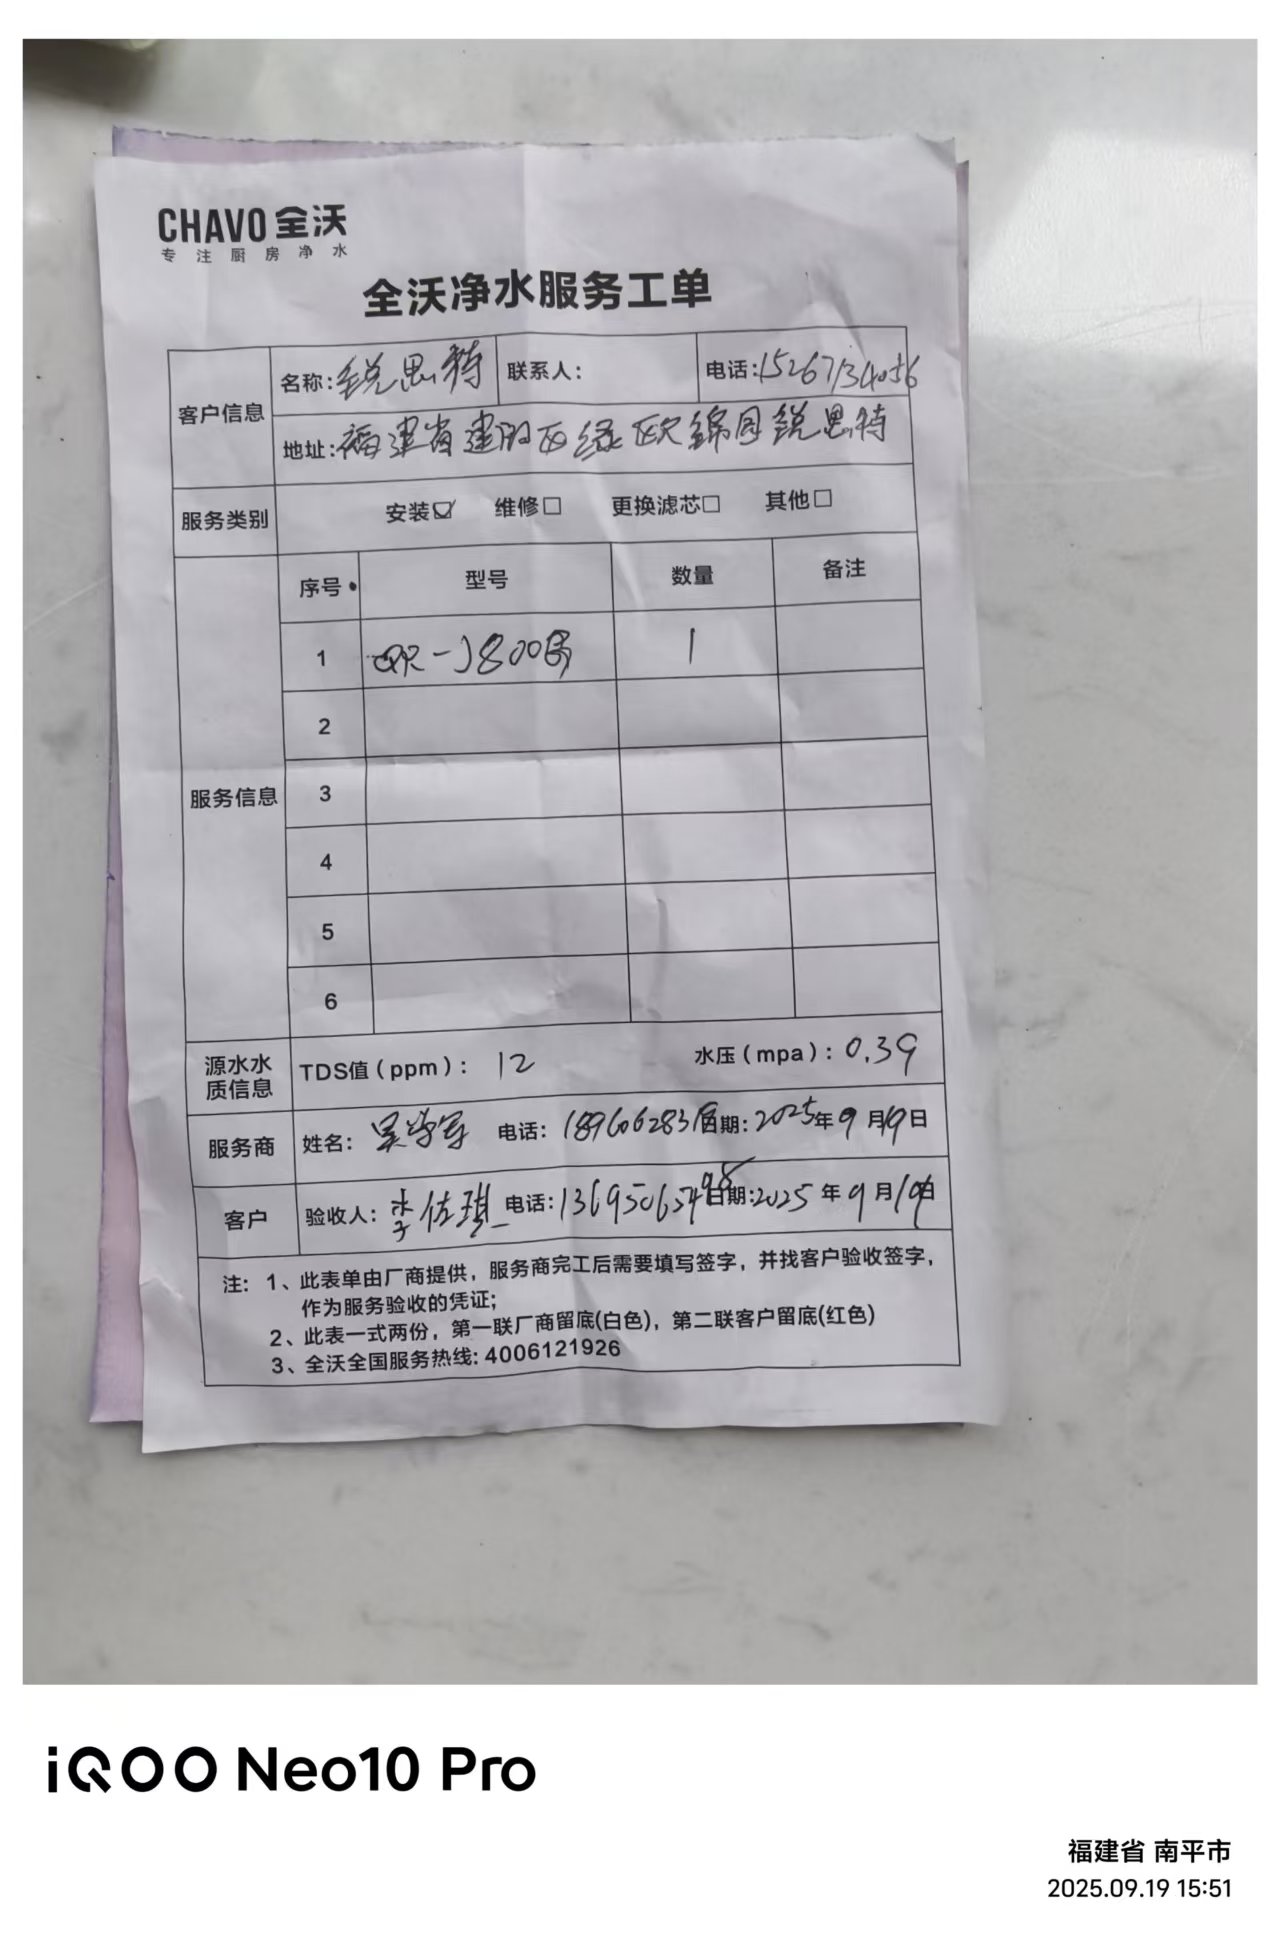 CHAVO 全沃
专注厨房净水
全沃净水服务工单
客户信息 名称：锐思特 联系人： 电话：15267134056
地址：福建省建阳区绿欧锦园锐思特
服务类别 安装☑ 维修□ 更换滤芯□ 其他□
服务信息 序号 型号 数量 备注
1 -J800G 1
2
3
4
5
6
源水水质信息 TDS值（ppm）： 12 水压（mpa）：0.39
服务商 姓名： 吴 电话： 日期：2025年9月19日
客户 验收人：李佐琪 电话： 日期：2025年9月19日
注：1、此表单由厂商提供，服务商完工后需要填写签字，并找客户验收签字，
作为服务验收的凭证；
2、此表一式两份，第一联厂商留底(白色)，第二联客户留底(红色)
3、全沃全国服务热线：4006121926
iQOO Neo10 Pro
福建省 南平市
2025.09.19 15:51